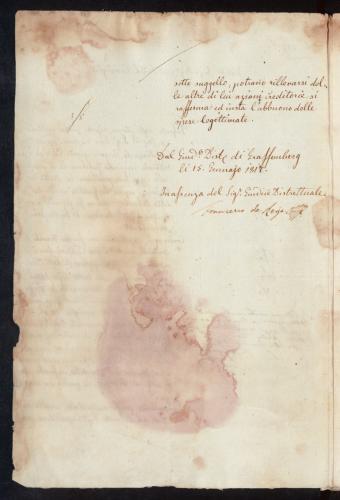 sotto suggello, potranno rillevarsi dal-
le altre di lui azioni creditorie si
rafferma ed insta l'abbuono delle
spese legittimate.
Dal Giud.º Dist.e di Graffemberg
li 15. Gennajo 181
In assenza del Sig.r Giudice Distrettuale
Francesco de